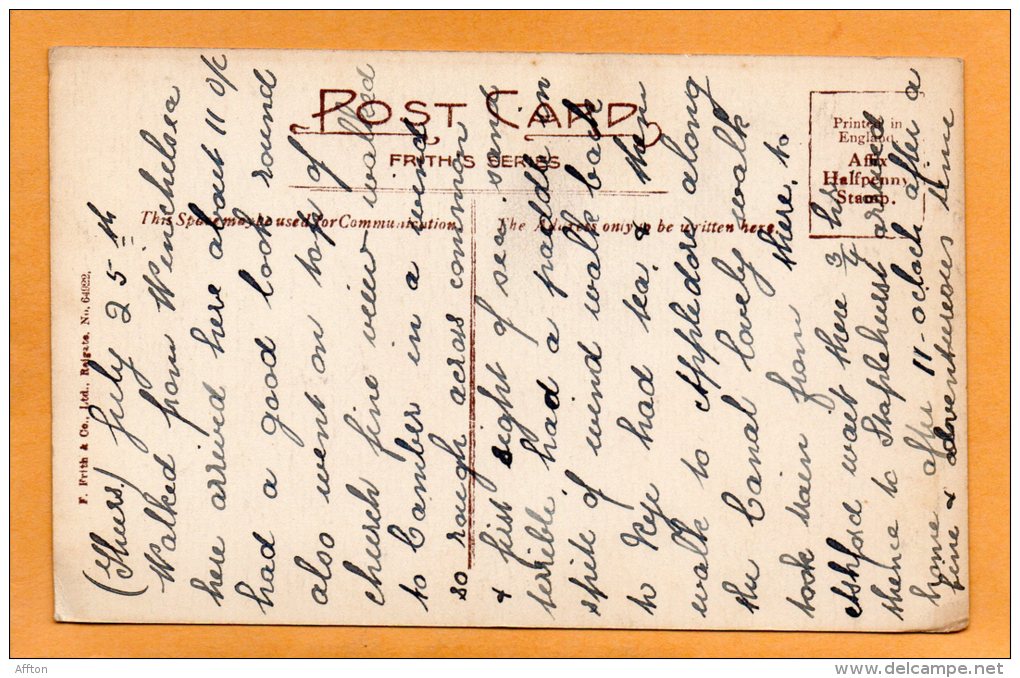 POST CARD
FRITH'S SERIES
This Space may be used for Communication
The Address only to be written here.
Printed in
England
Affix
Halfpenny
Stamp.
F. Frith & Co., Ltd., Reigate. No. 64922.
(Thurs.) July 25th
Walked from Winchelsea
here arrived here about 11 o/c
had a good look round
also went on top of
church fine view walked
to Camber in a wind
so rough across common
& first sight of sea sand
terrible, had a paddle in
spite of wind walk back
to Rye had tea & then
walk to Appledore along
the Canal lovely walk
took train from there, to
Ashford wait there 3/4 hr
thence to Staplehurst arrived
home after 11-oclock after a
fine & adventureous time
Affton
delcampe.net